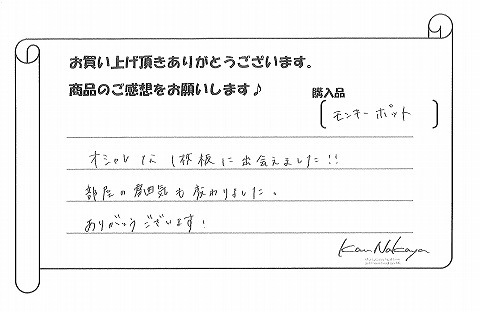 お買い上げ頂きありがとうございます。
商品のご感想をお願いします♪
購入品
モンキーポット
オシャレな1枚板に出会えました!!
部屋の雰囲気も変わりました。
ありがとうございます!
Kan Nakaya